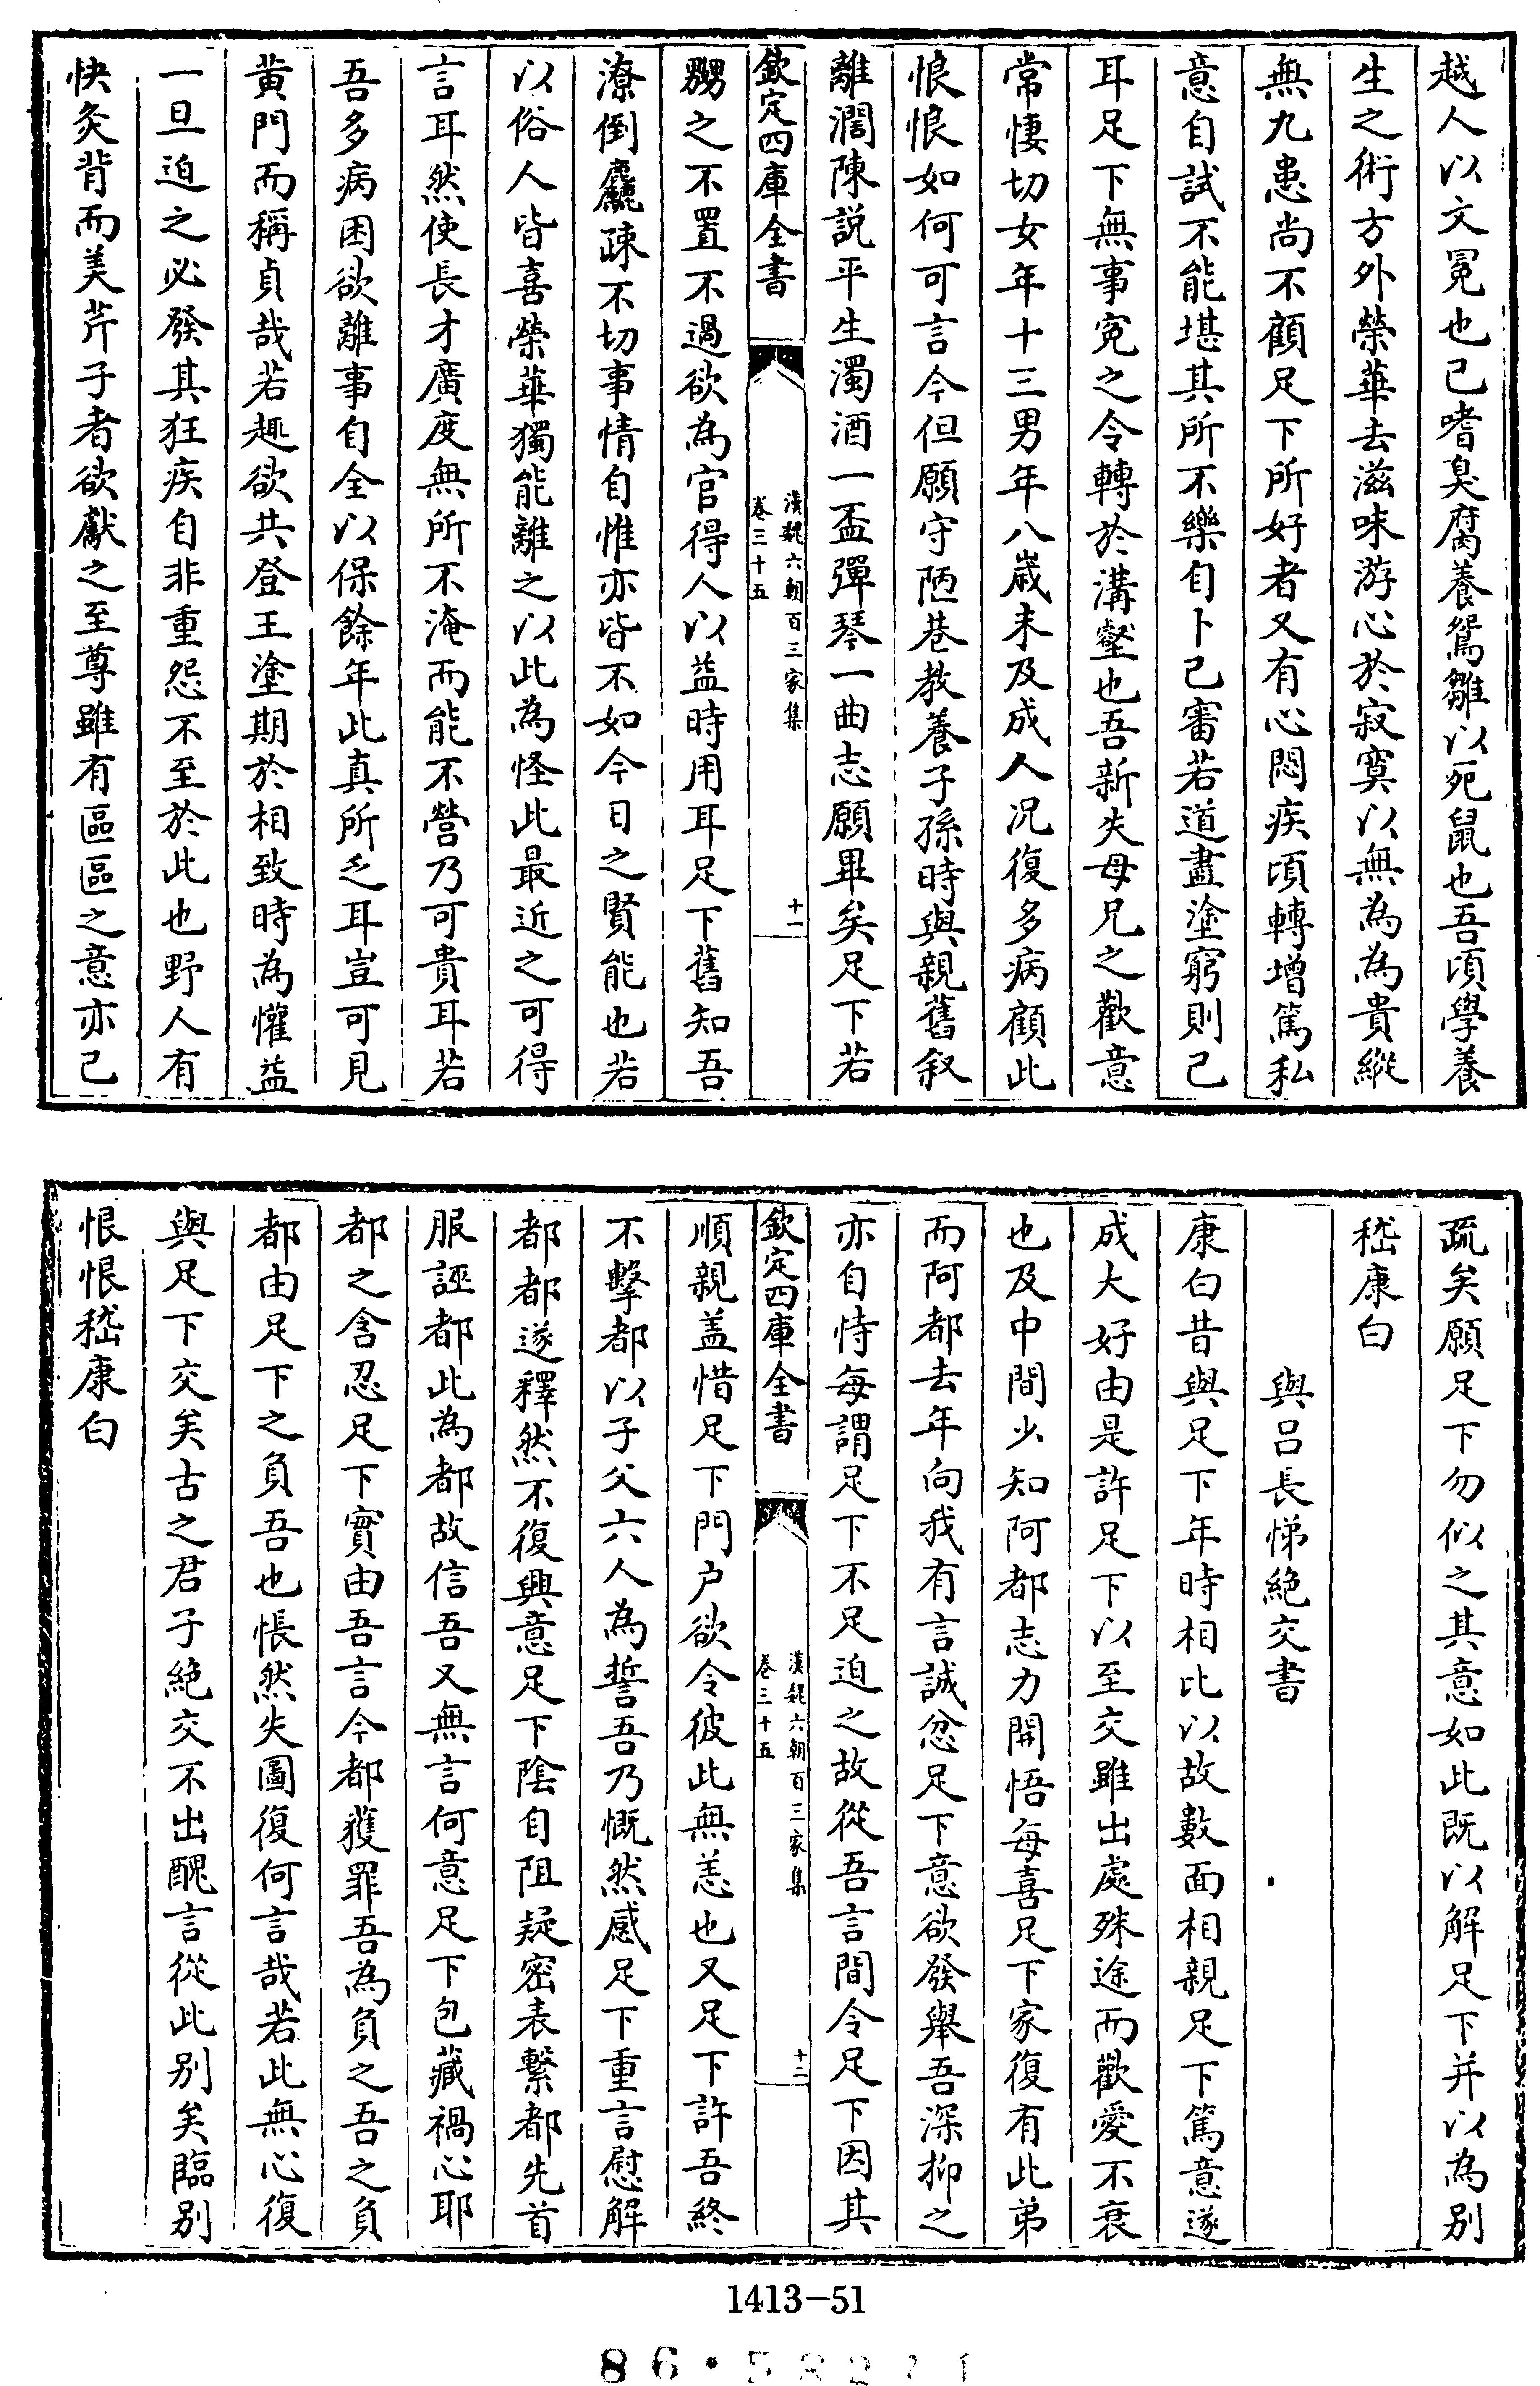 越人以文冕也己嗜臭腐養鴛雛以死鼠也吾頃學養
生之術方外榮華去滋味游心於寂寞以無為為貴縱
無九患尚不顧足下所好者又有心悶疾頃轉增篤私
意自試不能堪其所不樂自卜已審若道盡塗窮則已
耳足下無事寃之令轉於溝壑也吾新失母兄之歡意
常悽切女年十三男年八歲未及成人况復多病顧此
悢悢如何可言今但願守陋巷教養子孫時與親舊叙
離濶陳説平生濁酒一盃彈琴一曲志願畢矣足下若
欽定四庫全書
漢魏六朝百三家集
卷三十五
十一
嬲之不置不過欲為官得人以益時用耳足下舊知吾
潦倒麤疎不切事情自惟亦皆不如今日之賢能也若
以俗人皆喜榮華獨能離之以此為怪此最近之可得
言耳然使長才廣度無所不淹而能不營乃可貴耳若
吾多病困欲離事自全以保餘年此真所乏耳豈可見
黄門而稱貞哉若趣欲共登王塗期於相致時為懽益
一旦迫之必發其狂疾自非重怨不至於此也野人有
快炙背而美芹子者欲獻之至尊雖有區區之意亦已
疏矣願足下勿似之其意如此既以解足下并以為别
嵇康白
與吕長悌絶交書
康白昔與足下年時相比以故數面相親足下篤意遂
成大好由是許足下以至交雖出處殊途而歡愛不衰
也及中間少知阿都志力開悟每喜足下家復有此弟
而阿都去年向我有言誠忿足下意欲發舉吾深抑之
亦自恃每謂足下不足迫之故從吾言間令足下因其
欽定四庫全書
漢魏六朝百三家集
卷三十五
十二
順親盖惜足下門户欲令彼此無恙也又足下許吾終
不擊都以子父六人為誓吾乃慨然感足下重言慰解
都都遂釋然不復興意足下陰自阻疑密表繫都先首
服誣都此為都故信吾又無言何意足下包藏禍心耶
都之含忍足下實由吾言今都獲罪吾為負之吾之負
都由足下之負吾也悵然失圖復何言哉若此無心復
與足下交矣古之君子絶交不出醜言從此别矣臨别
恨恨嵇康白
1413—51